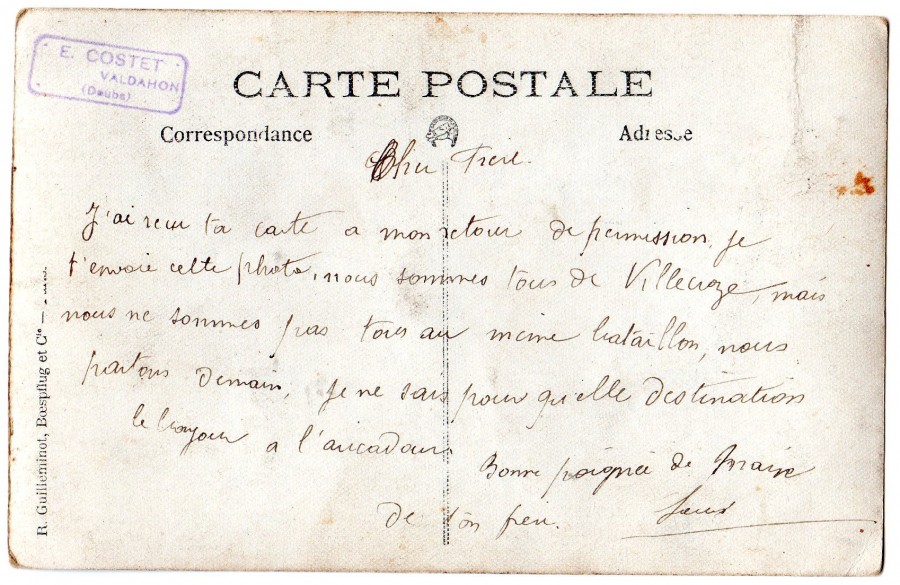 E. COSTET
VALDAHON
(Doubs)
CARTE POSTALE
Correspondance
Adresse
Cher Frere.
J'ai reçu ta carte a mon retour de permission, je
t'envoie cette photo, nous sommes tous de Villecroze, mais
nous ne sommes pas tous au meme bataillon, nous
partons demain, je ne sais pour qu'elle destination
le bonjour a l'aucadour
Bonne poignée de main
de ton frere.
R. Guilleminot, Bœspflug et Cie —